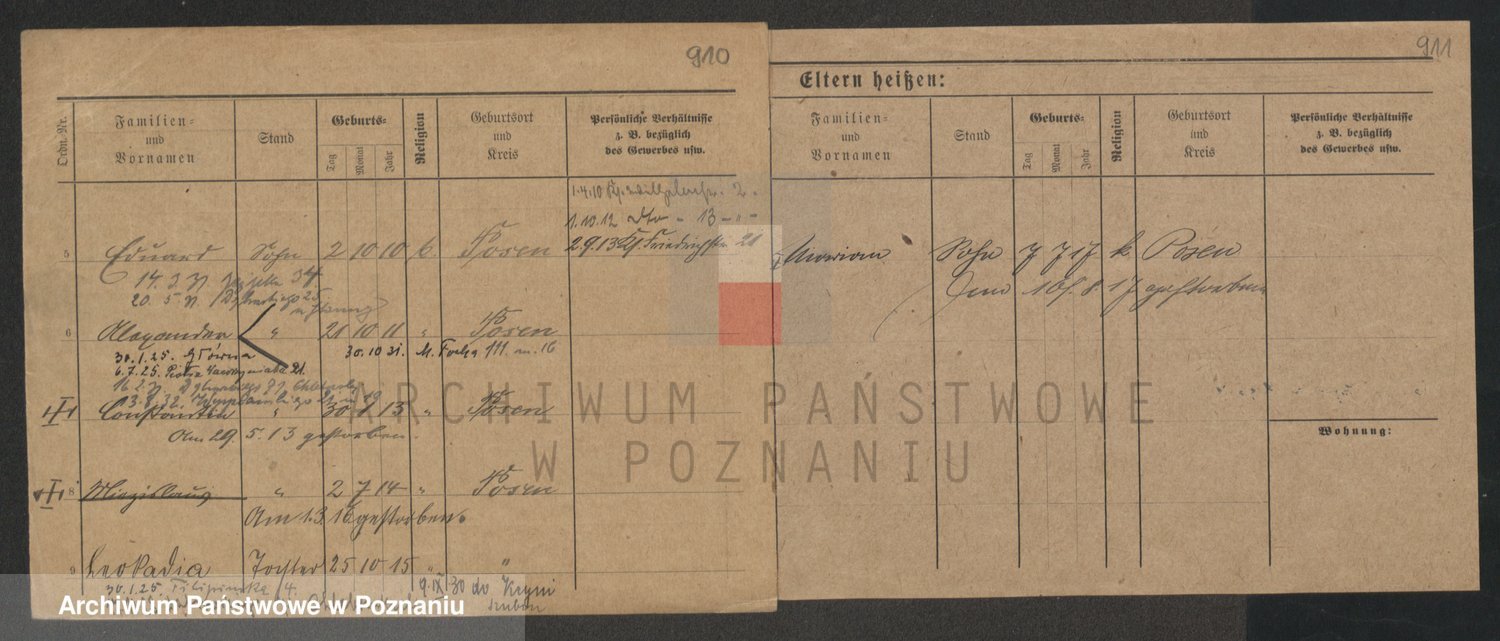 910
Ordn.-Nr.
Familien- und Vornamen
Stand
Geburts-
Tag
Monat
Jahr
Religion
Geburtsort und Kreis
Persönliche Verhältnisse z. B. bezüglich des Gewerbes usw.
1.4.10
2.
1.10.12 dto - 13 - " -
2.9.13 Kl. Friedrichstr. 21
5 Eduard Sohn 2 10 10 k. Posen
14. 3.
20. 5.
6 Alexander " 21 10 11 " Posen
30.1.25. Główna 30.10 31. M. Focha 111. m. 16
6.7.25. Piotra Wawrzyniaka 21.
Constantin " 30 13 " Posen
Am 29. 5. 13 gestorben.
8 Miezislaus " 2 7 14 " Posen
Am 1.3.16 gestorben.
9 Leokadia Tochter 25 10 15 " "
30.1.25. Filipinska 4. 9.IX 30 do Kcyni
szubin
911
Eltern heißen:
Familien- und Vornamen
Stand
Geburts-
Tag
Monat
Jahr
Religion
Geburtsort und Kreis
Persönliche Verhältnisse z. B. bezüglich des Gewerbes usw.
Marian Sohn 7 7 17 k. Posen
8 17 gestorben
Wohnung:
ARCHIWUM PAŃSTWOWE
W POZNANIU
Archiwum Państwowe w Poznaniu